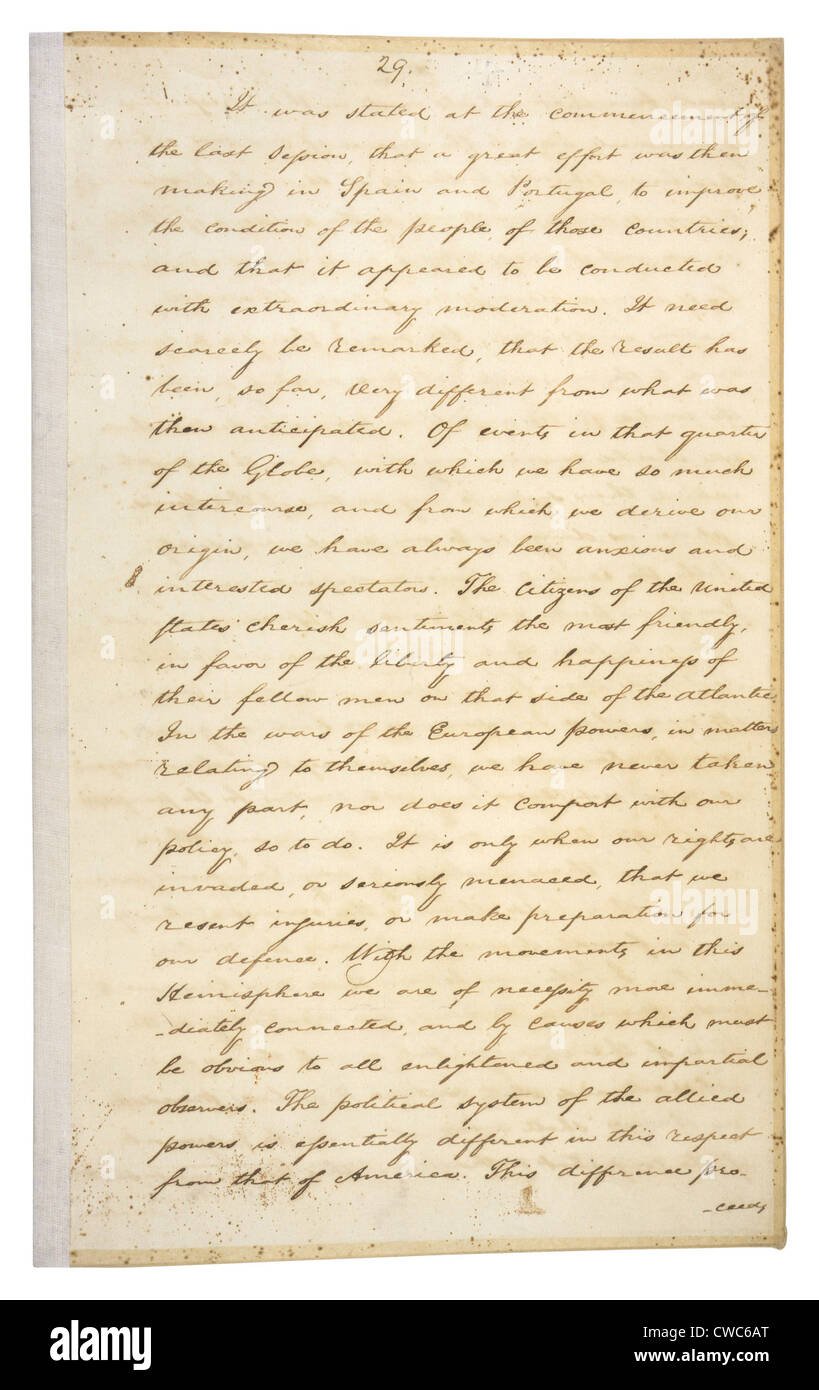 29.
It was stated at the commencement of
the last session, that a great effort was then
making in Spain and Portugal, to improve
the condition of the people, of those countries;
and that it appeared to be conducted
with extraordinary moderation. It need
scarcely be remarked, that the result has
been, so far, very different from what was
then anticipated. Of events in that quarter
of the Globe, with which we have so much
intercourse, and from which we derive our
origin, we have always been anxious and
interested spectators. The Citizens of the United
States cherish sentiments the most friendly,
in favor of the liberty and happiness of
their fellow men on that side of the atlantic.
In the wars of the European powers, in matters
relating to themselves, we have never taken
any part, nor does it comport with our
policy, so to do. It is only when our rights are
invaded, or seriously menaced, that we
resent injuries, or make preparation for
our defence. With the movements in this
Hemisphere we are of necessity more imme-
-diately connected, and by causes which must
be obvious to all enlightened and impartial
observers. The political system of the allied
powers is essentially different in this respect
from that of America. This difference pro-
-ceeds
a
alamy
alamy
Image ID: CWC6AT
www.alamy.com